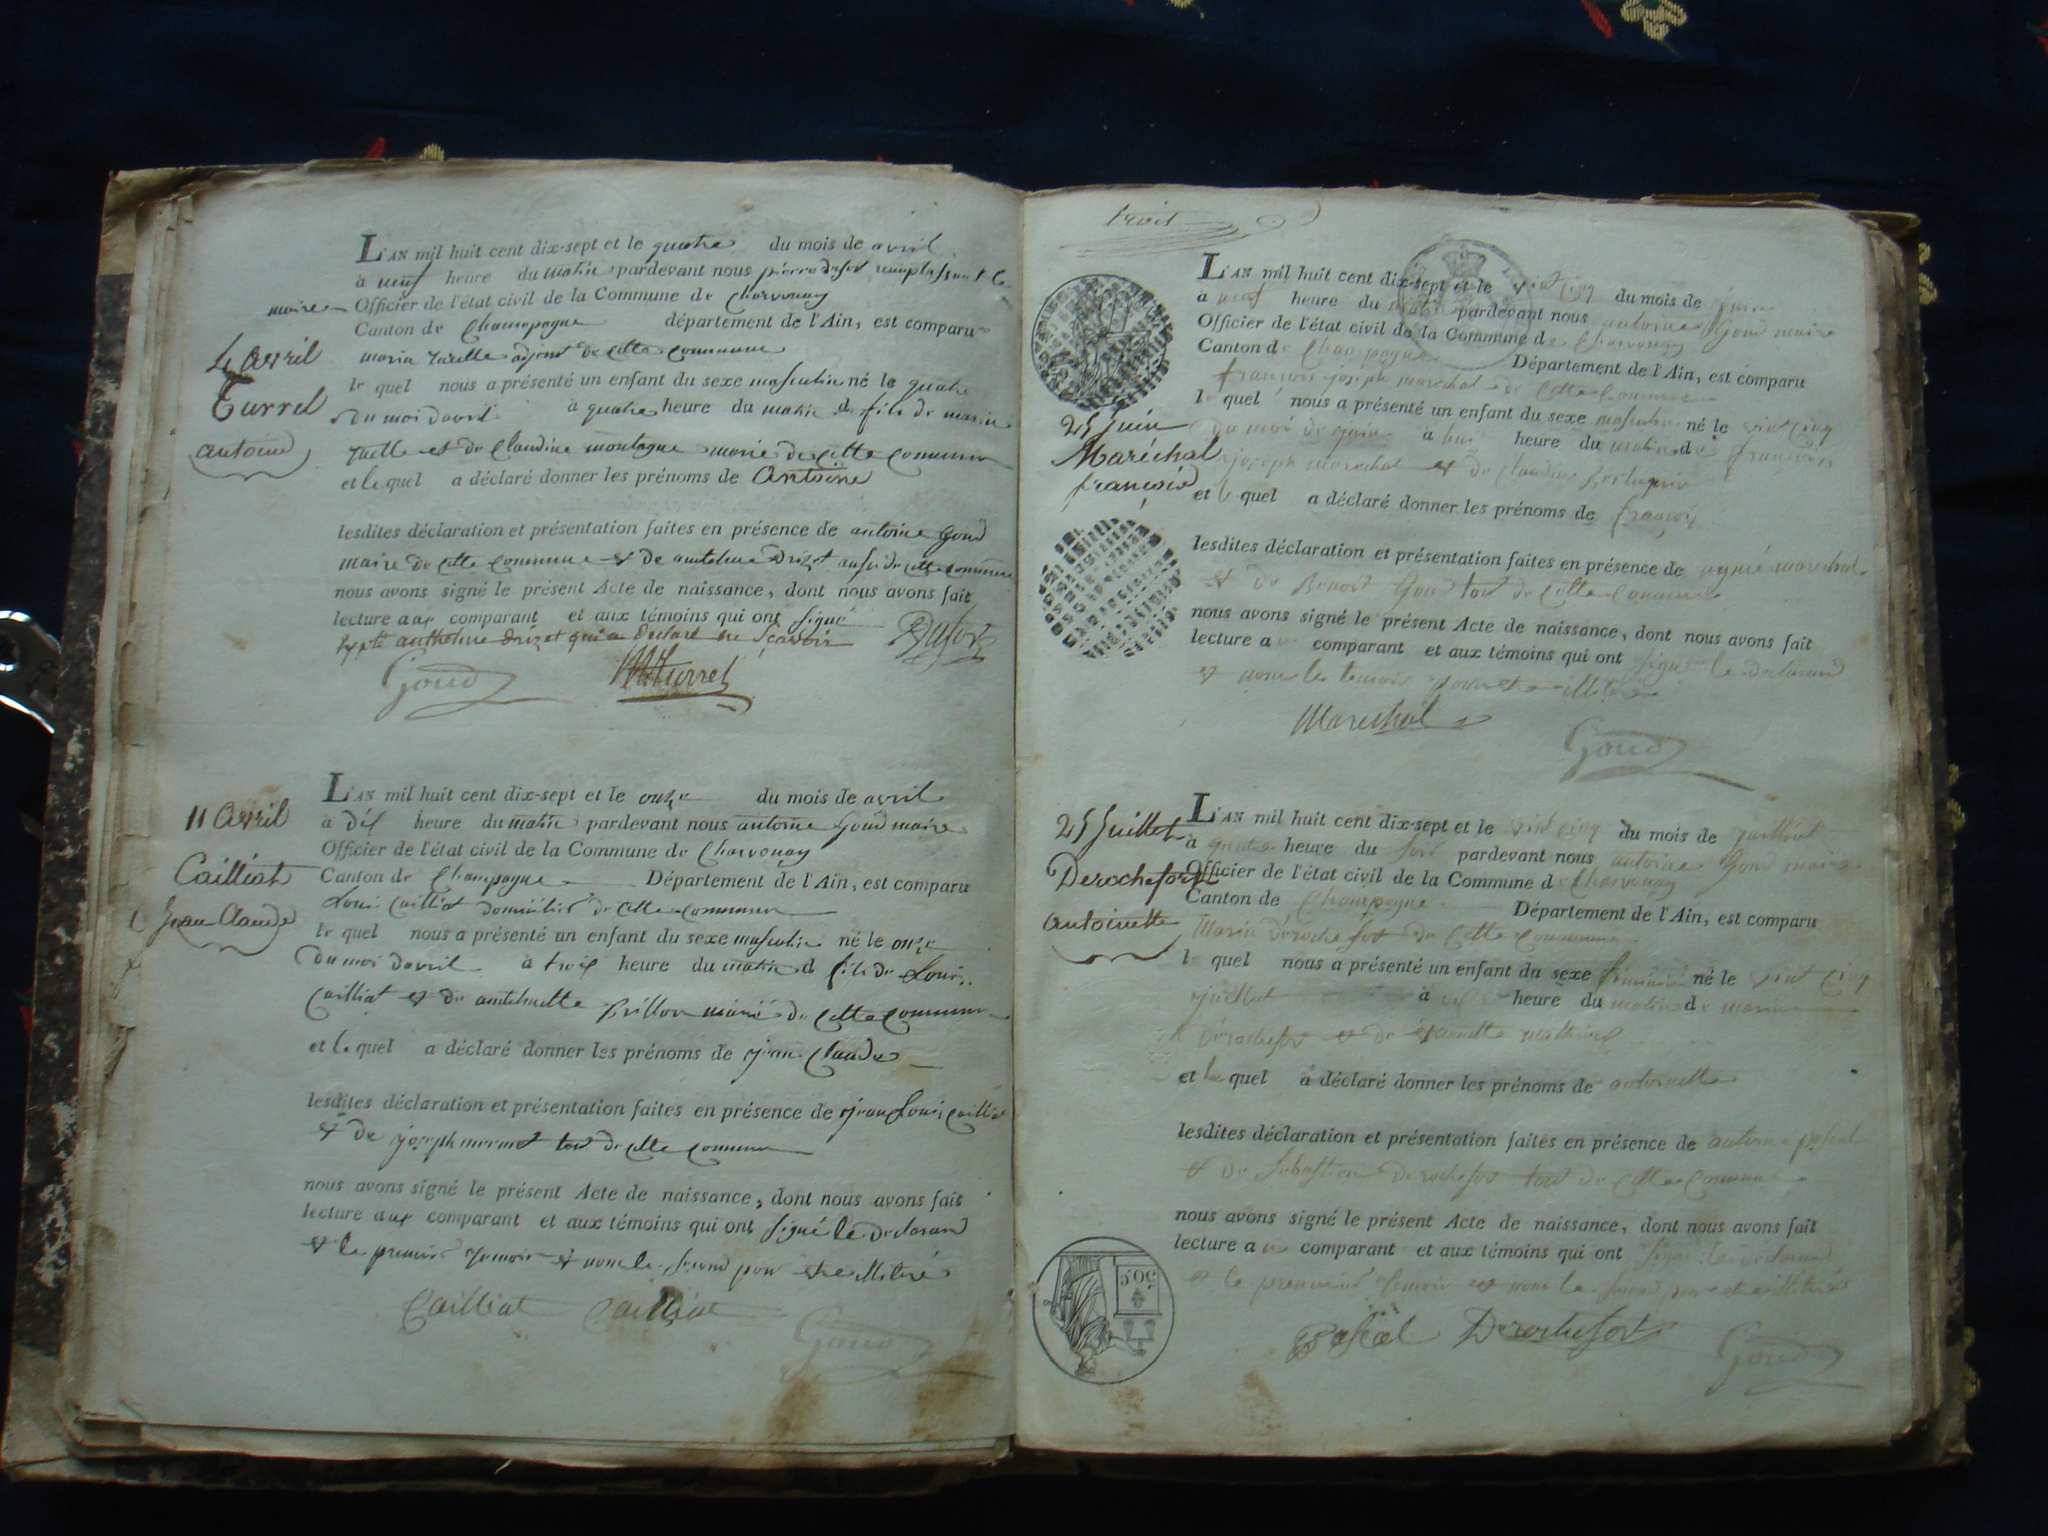 L'AN mil huit cent dix-sept et le quatre du mois de avril
à neuf heure du matin pardevant nous pierre dufort remplassant le
maire Officier de l'état civil de la Commune de Charvonay
Canton de Champagne département de l'Ain, est comparu
4 avril
marin adjoint de cette commune
le quel nous a présenté un enfant du sexe masculin né le quatre
Turrel
du moi davril à quatre heure du matin de fils de marin
antoine
et de Claudine montagne marié de cette commune
et le quel a déclaré donner les prénoms de Antoine
lesdites déclaration et présentation faites en présence de antoine Goud
maire de cette commune et de antelme drizet ausi de cette commune
nous avons signé le présent Acte de naissance, dont nous avons fait
lecture aux comparant et aux témoins qui ont signé
antholme drizet qui a déclaré ne sçavoir
Dufort
Goud Turrel
L'AN mil huit cent dix-sept et le onze du mois de avril
11 avril
à dix heure du matin pardevant nous antoine Goud maire
Officier de l'état civil de la Commune de Charvonay
Cailliat
Canton de Champagne Département de l'Ain, est comparu
Louis Cailliat domicilié de cette commune
Jean Claude
le quel nous a présenté un enfant du sexe masculin né le onze
du moi davril à trois heure du matin d fils de Louis
Cailliat et de antelmette Brillon marié de cette commune
et le quel a déclaré donner les prénoms de jean Claude
lesdites déclaration et présentation faites en présence de jean Louis Cailliat
et de joseph mermet tout de cette commune
nous avons signé le présent Acte de naissance, dont nous avons fait
lecture aux comparant et aux témoins qui ont signé le declarand
et le premier temoin et nom le segond pour etre illitéré
Cailliat Cailliat
Goud
troit
L'AN mil huit cent dix-sept et le vint cinq du mois de juin
à neuf heure du matin pardevant nous antoine Goud maire
Officier de l'état civil de la Commune de Charvonay
Canton de Champagne Département de l'Ain, est comparu
françois joseph marechal de cette commune
le quel nous a présenté un enfant du sexe masculin né le vint cinq
25 juin
du moi de juin à huit heure du matin de françois
Maréchal
joseph marechal et de Claudine
françois
et le quel a déclaré donner les prénoms de françois
lesdites déclaration et présentation faites en présence de marechal
et de Benoit Goud tout de cette commune
nous avons signé le présent Acte de naissance, dont nous avons fait
lecture a comparant et aux témoins qui ont signé le declarand
et nom les temoin pour etre illitéré
Marechal
Goud
L'AN mil huit cent dix-sept et le vint cinq du mois de juilliet
25 Juillet
à quatre heure du soir pardevant nous antoine Goud maire
Officier de l'état civil de la Commune de Charvonay
Derochefort
Canton de Champagne Département de l'Ain, est comparu
antoinette
Marin derochefort de cette commune
le quel nous a présenté un enfant du sexe feminin né le vint cinq
juilliet à heure du matin de marin
derochefort et de
et le quel a déclaré donner les prénoms de antoinette
lesdites déclaration et présentation faites en présence de antoine pascal
et de Sebastien derochefort tout de cette commune
nous avons signé le présent Acte de naissance, dont nous avons fait
lecture a comparant et aux témoins qui ont signé le declarand
et le premier temoin et nom le segond pour etre illitéré
50 c
Derochefort
Goud